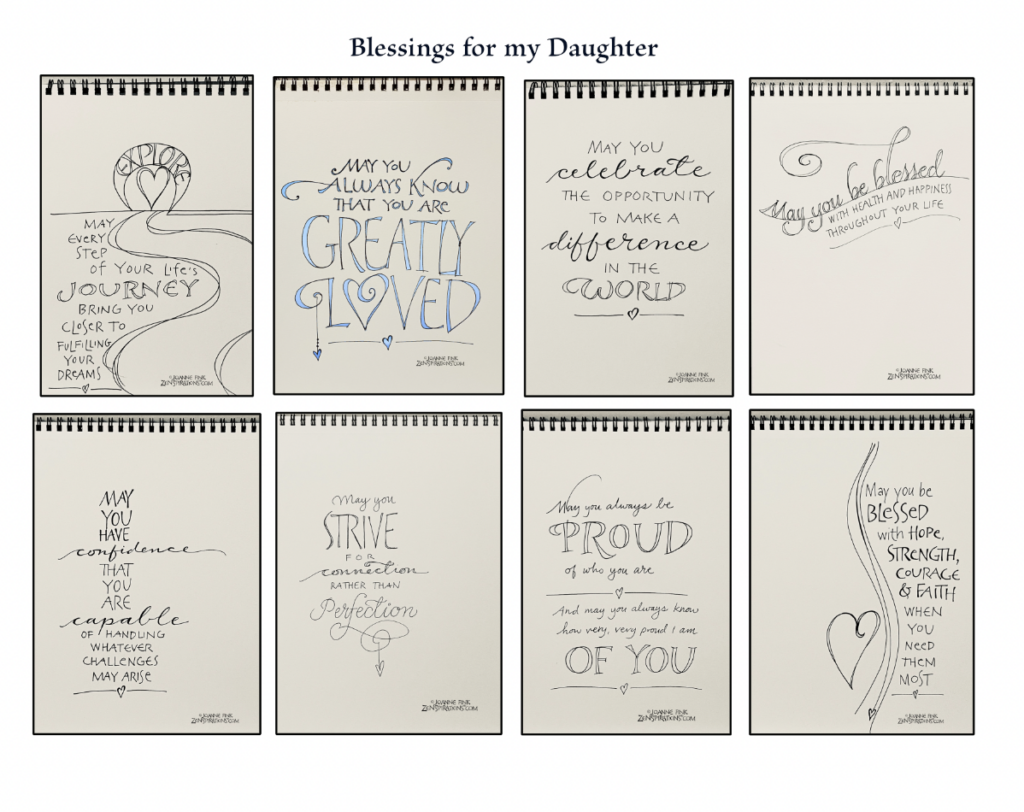 Blessings for my Daughter
EXPLORE
MAY
EVERY
STEP
OF YOUR LIFE'S
JOURNEY
BRING YOU
CLOSER TO
FULFILLING
YOUR
DREAMS
©JOANNE FINK
ZENSPIRATIONS.COM
MAY YOU
ALWAYS KNOW
THAT YOU ARE
GREATLY
LOVED
©JOANNE FINK
ZENSPIRATIONS.COM
MAY YOU
celebrate
THE OPPORTUNITY
TO MAKE A
difference
IN THE
WORLD
©JOANNE FINK
ZENSPIRATIONS.COM
May you be blessed
WITH HEALTH AND HAPPINESS
THROUGHOUT YOUR LIFE
©JOANNE FINK
ZENSPIRATIONS.COM
MAY
YOU
HAVE
confidence
THAT
YOU
ARE
capable
OF HANDLING
WHATEVER
CHALLENGES
MAY ARISE
©JOANNE FINK
ZENSPIRATIONS.COM
May you
STRIVE
FOR
connection
RATHER THAN
Perfection
©JOANNE FINK
ZENSPIRATIONS.COM
May you always be
PROUD
of who you are
And may you always know
how very, very proud I am
OF YOU
©JOANNE FINK
ZENSPIRATIONS.COM
May you be
BLESSED
with HOPE,
STRENGTH,
COURAGE
& FAITH
WHEN
YOU
NEED
THEM
MOST
©JOANNE FINK
ZENSPIRATIONS.COM